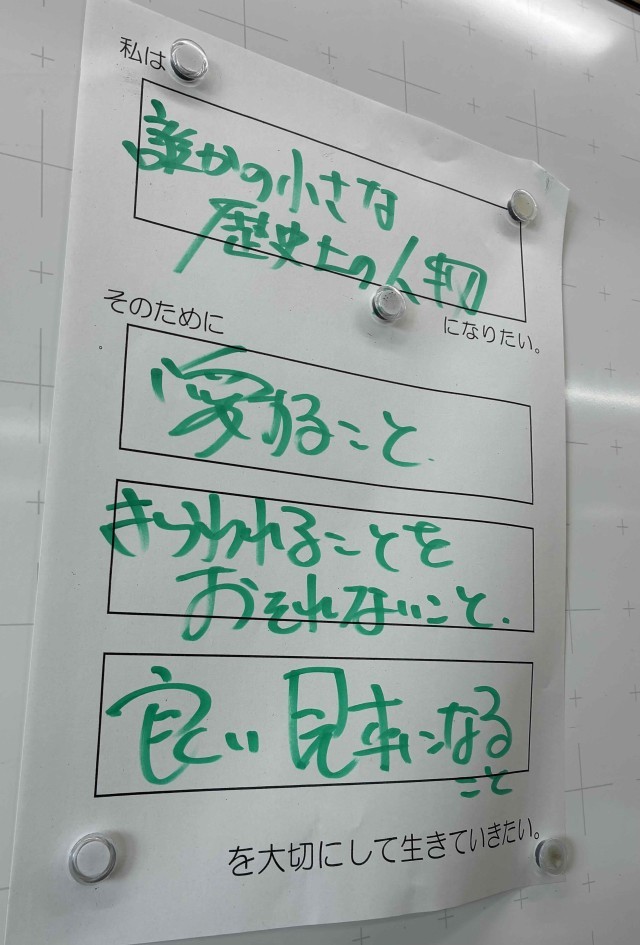 私は
誰かの小さな
歴史上の人物
になりたい。
そのために
愛すること.
きらわれることを
おそれないこと.
良い見本になる
こと
を大切にして生きていきたい。